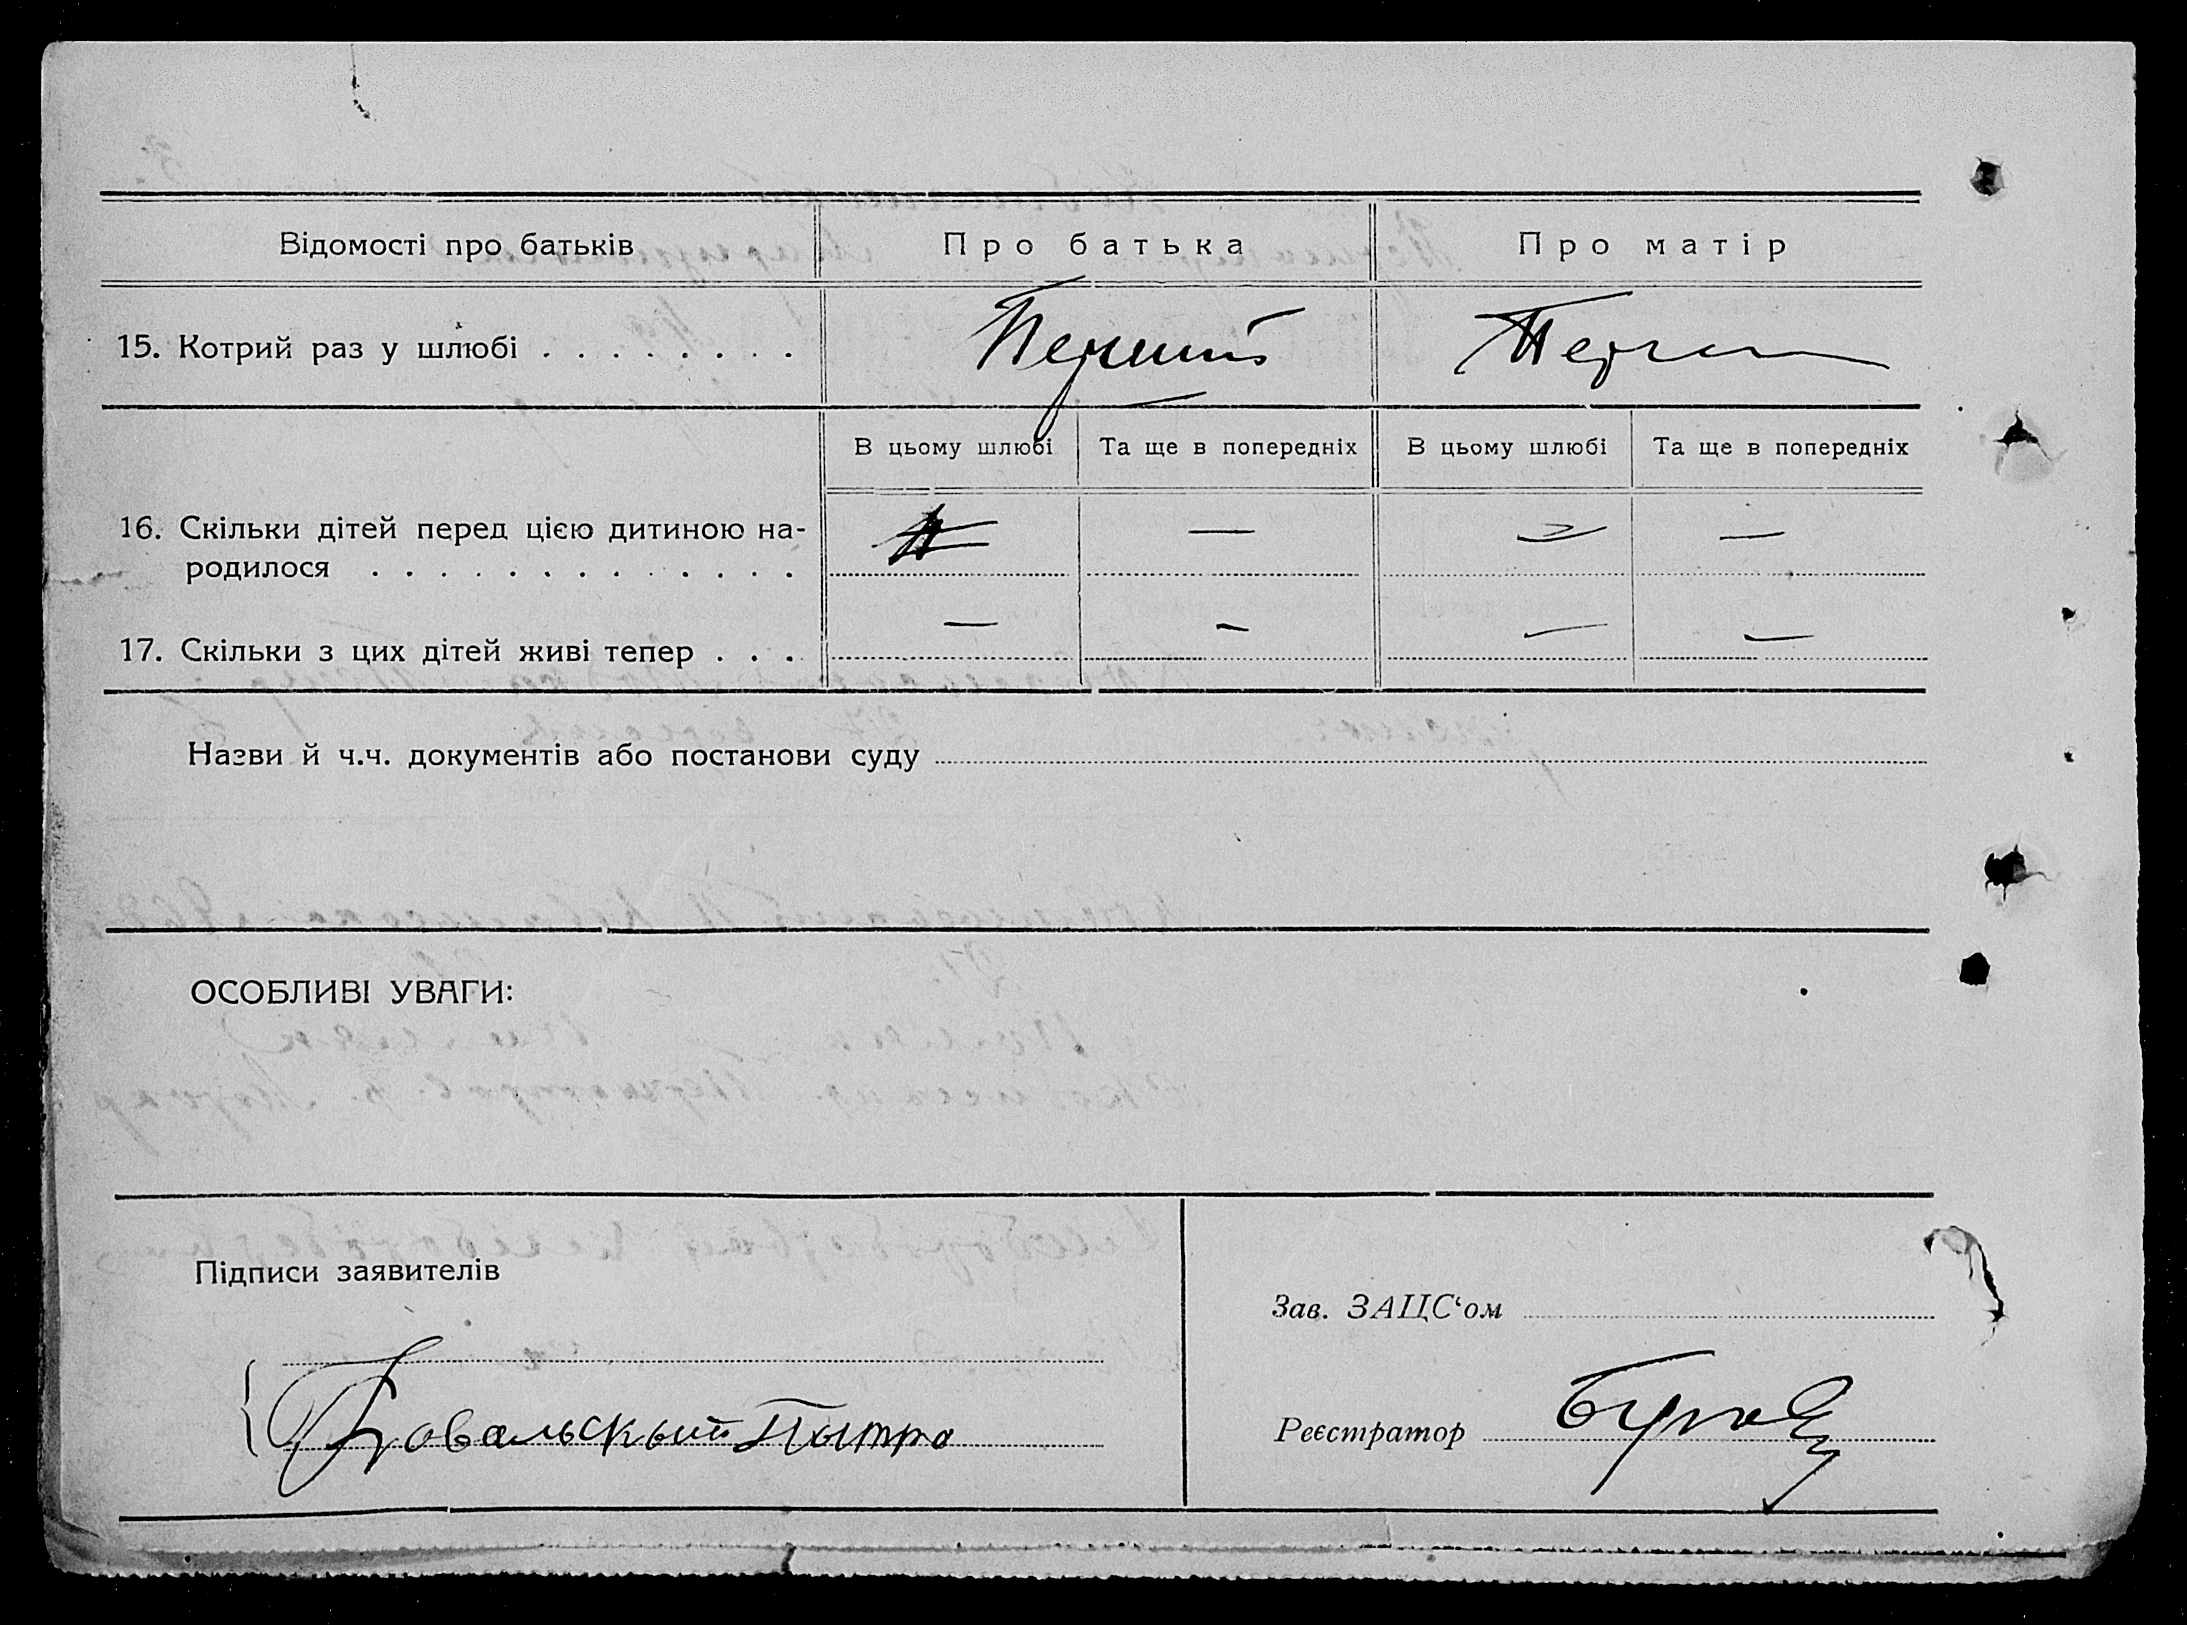 Відомості про батьків Про батька Про матір
15. Котрий раз у шлюбі . . . . . . . . Перший Перш
В цьому шлюбі Та ще в попередніх В цьому шлюбі Та ще в попередніх
16. Скільки дітей перед цією дитиною на-
родилося . . . . . . . . . . . . . . — — —
17. Скільки з цих дітей живі тепер . . . — — — —
Назви й ч.ч. документів або постанови суду
ОСОБЛИВІ УВАГИ:
Підписи заявителів
Зав. ЗАЦС‘ом
Ковальскый Пытро
Реєстратор